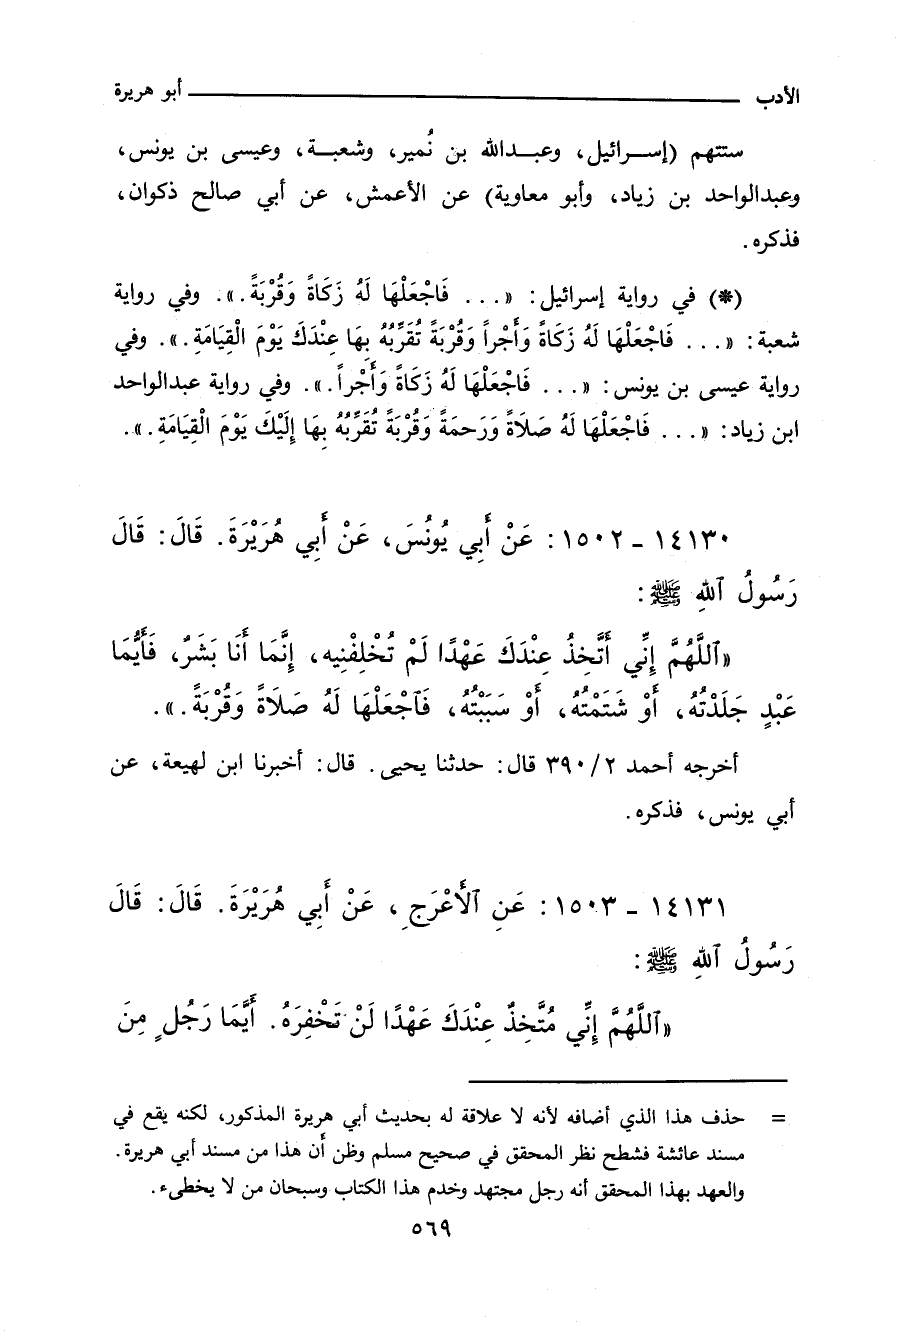 الأدب ــــــــــــــــــــــــــــــــــــ أبو هريرة
ستتهم (إســرائيل، وعبــدالله بن نُمير، وشعبــة، وعيسى بن يونس،
وعبدالواحد بن زياد، وأبو معاوية) عن الأعمش، عن أبي صالح ذكوان،
فذكره.
(*) في رواية إسرائيل: «... فَاجْعَلْهَا لَهُ زَكَاةً وَقُرْبَةً.». وفي رواية
شعبة: «... فَاجْعَلْهَا لَهُ زَكَاةً وَأَجْراً وَقُرْبَةً تُقَرِّبُهُ بِهَا عِنْدَكَ يَوْمَ الْقِيَامَةِ.». وفي
رواية عيسى بن يونس: «... فَاجْعَلْهَا لَهُ زَكَاةً وَأَجْراً.». وفي رواية عبدالواحد
ابن زياد: «... فَاجْعَلْهَا لَهُ صَلَاةً وَرَحمَةً وَقُرْبَةً تُقَرِّبُهُ بِهَا إِلَيْكَ يَوْمَ الْقِيَامَةِ.».
١٤١٣٠ - ١٥٠٢: عَنْ أَبِي يُونُسَ، عَنْ أَبِي هُرَيْرَةَ. قَالَ: قَالَ
رَسُولُ ٱللهِ ﷺ:
«ٱللَّهُمَّ إِنِّي أَتَّخِذُ عِنْدَكَ عَهْدًا لَمْ تُخْلِفْنِيه، إِنَّمَا أَنَا بَشَرٌ، فَأَيُّمَا
عَبْدٍ جَلَدْتُهُ، أَوْ شَتَمْتُهُ، أَوْ سَبَبْتُهُ، فَٱجْعَلْهَا لَهُ صَلَاةً وَقُرْبَةً.».
أخرجه أحمد ٢/ ٣٩٠ قال: حدثنا يحيى. قال: أخبرنا ابن لهيعة، عن
أبي يونس، فذكره.
١٤١٣١ - ١٥٠٣: عَنِ ٱلْأَعْرَجِ، عَنْ أَبِي هُرَيْرَةَ. قَالَ: قَالَ
رَسُولُ ٱللهِ ﷺ:
«ٱللَّهُمَّ إِنِّي مُتَّخِذٌ عِنْدَكَ عَهْدًا لَنْ تَخْفِرَهُ. أَيَّمَا رَجُلٍ مِنَ
= حذف هذا الذي أضافه لأنه لا علاقة له بحديث أبي هريرة المذكور، لكنه يقع في
مسند عائشة فشطح نظر المحقق في صحيح مسلم وظن أن هذا من مسند أبي هريرة.
والعهد بهذا المحقق أنه رجل مجتهد وخدم هذا الكتاب وسبحان من لا يخطىء.
٥٦٩